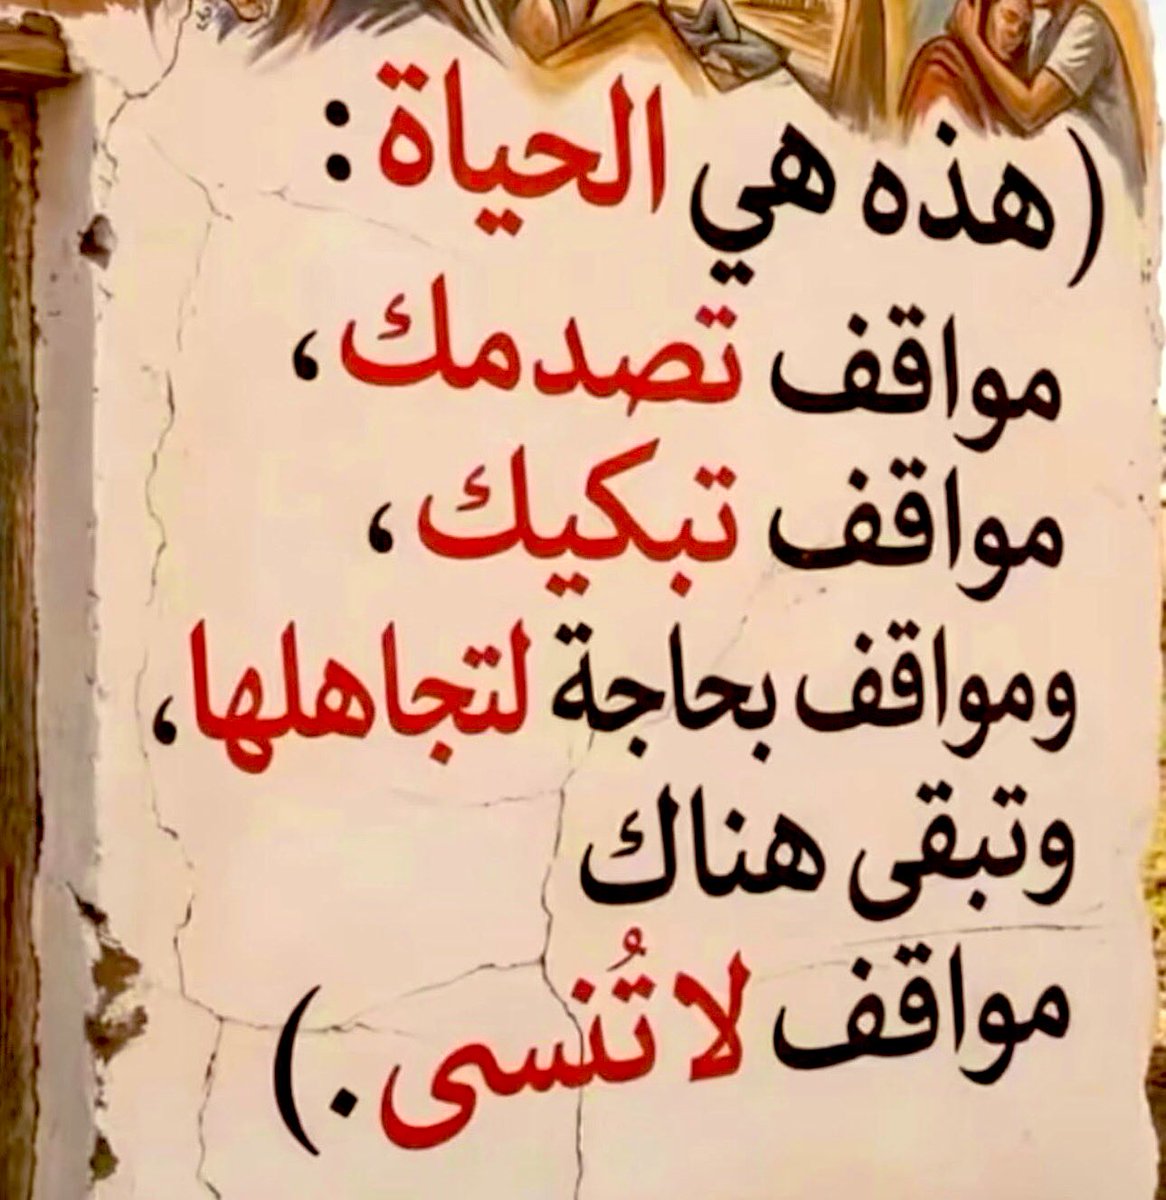 (هذه هي الحياة :
مواقف تصدمك ،
مواقف تبكيك ،
ومواقف بحاجة لتجاهلها ،
وتبقى هناك
مواقف لا تُنسى . )